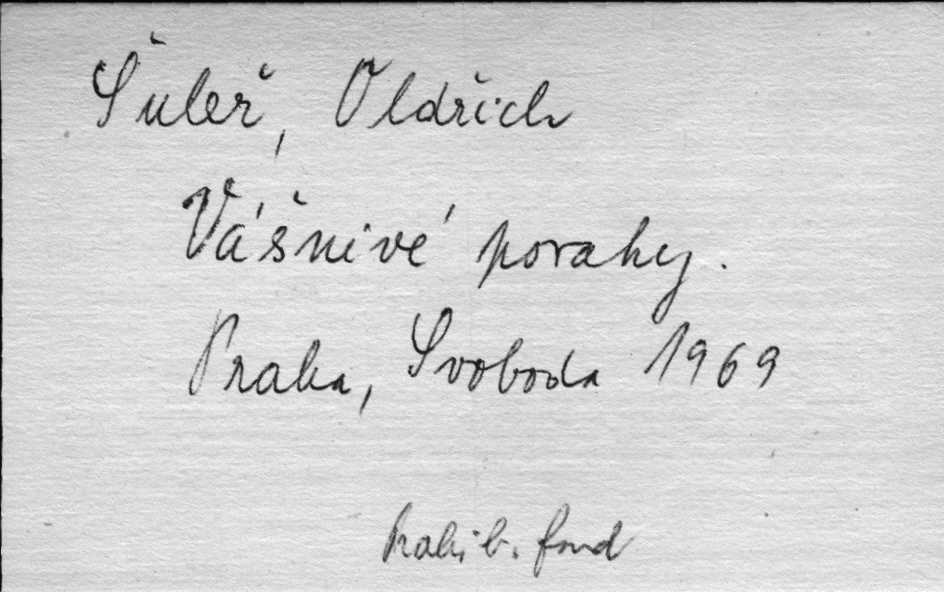 Šuleř, Oldřich
Vášnivé povahy.
Praha, Svoboda 1969
Prohib. fond